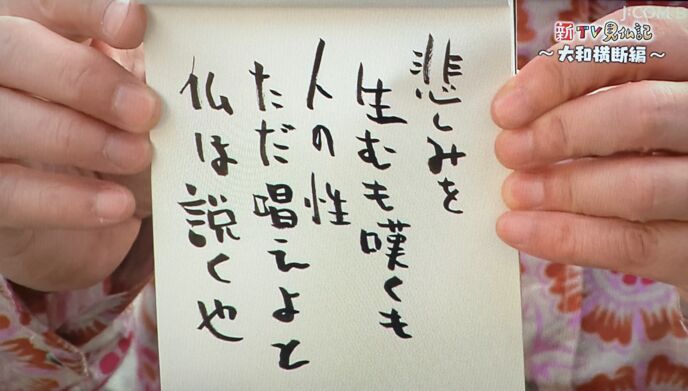 悲しみを
生むも嘆くも
人の性
ただ唱えよと
仏は説くや
J:COM BS
新TV見仏記
～大和横断編～